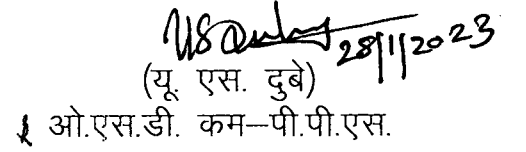 28/1/2023
(यू. एस. दुबे)
ओ.एस.डी. कम–पी.पी.एस.